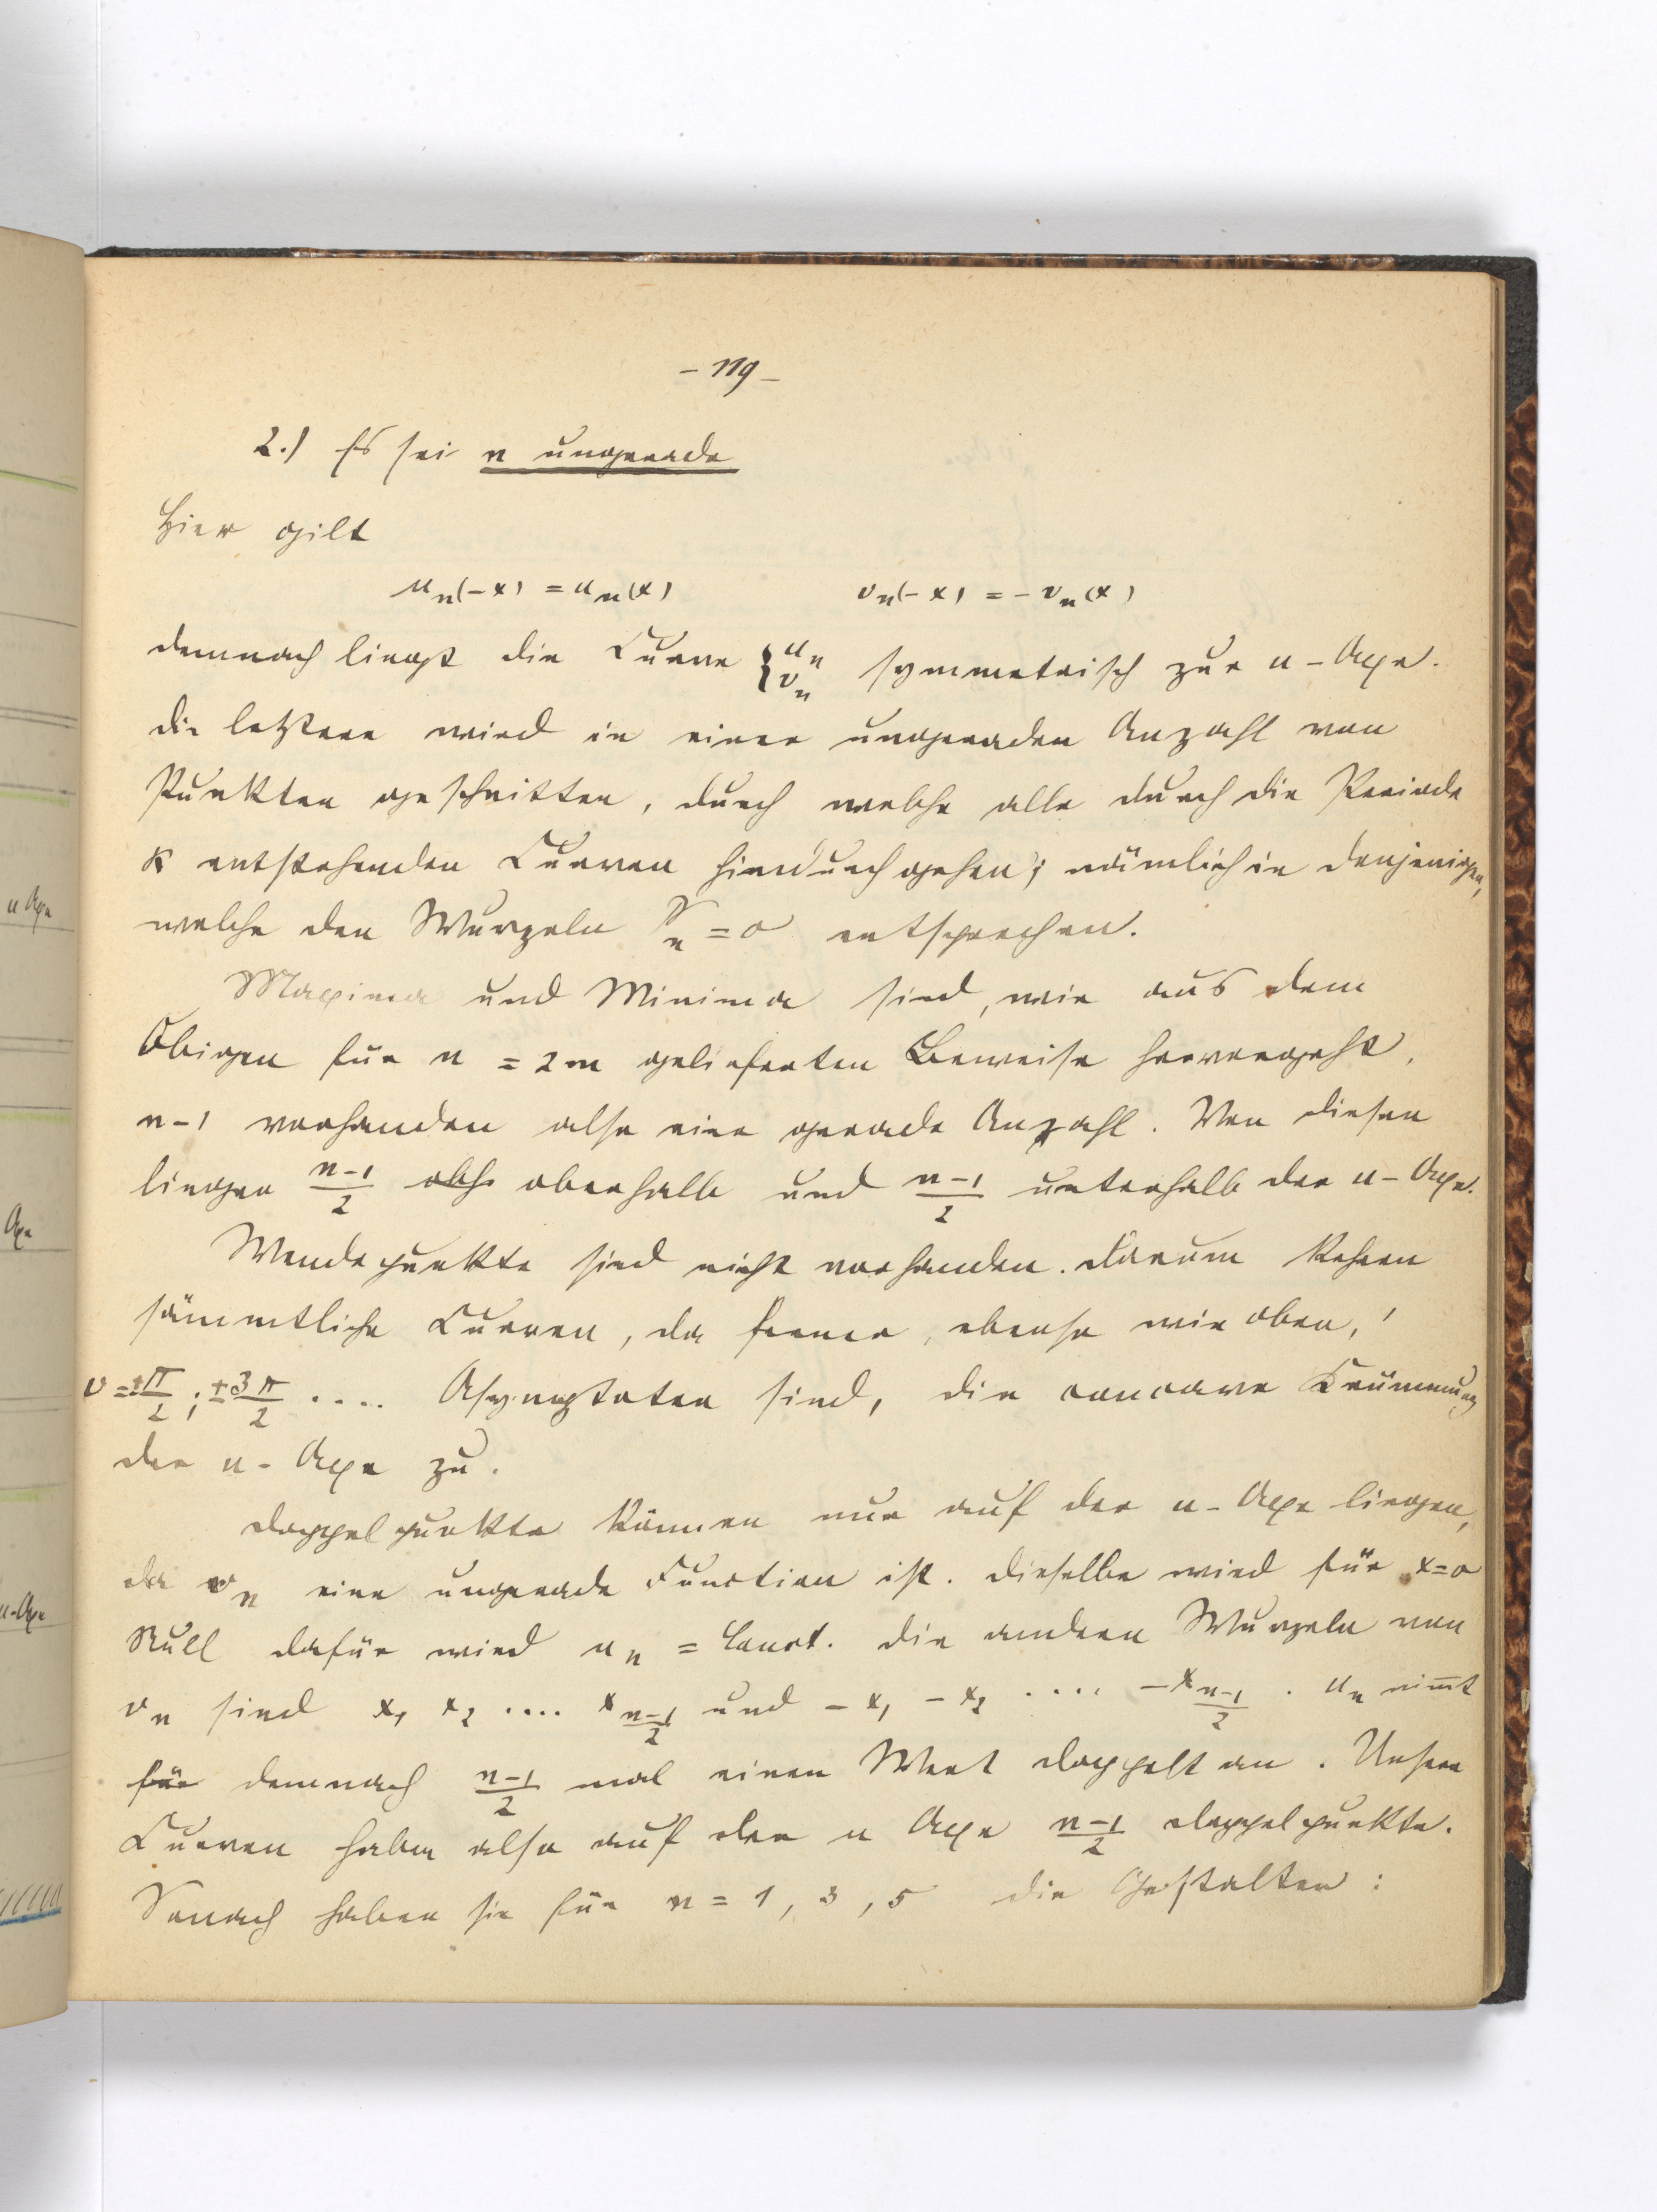 - 119 -
2.) Es sei n ungerade
Hier gilt
uₙ(-x) = uₙ(x) vₙ(-x) = - vₙ(x)
demnach liegt die Curve {uₙ vₙ symmetrisch zur u-Axe.
die letztere wird in einer ungeraden Anzahl von
Punkten geschnitten, durch welche alle durch die Periode
entstehenden Curven hindurchgehen; nämlich in denjenigen,
welche den Wurzeln Sₙ = 0 entsprechen.
Maxima und Minima sind, wie aus dem
Obigen für n = 2m gelieferten Beweise hervorgeht,
n-1 vorhanden also eine gerade Anzahl. Von diesen
liegen (n-1)/2 obh oberhalb und (n-1)/2 unterhalb der u-Axe.
Wendepunkte sind nicht vorhanden. Darum kehren
sämmtliche Curven, da ferner, ebenso wie oben,
v = ±π/2; ±3π/2 .... Asymptoten sind, die concave Krümmung
der u-Axe zu.
Doppelpunkte können nur auf der u-Axe liegen,
da vₙ eine ungerade Function ist. Dieselbe wird für x=0
Null dafür wird uₙ = Const. Die andern Wurzeln von
vₙ sind x₁ x₂ .... x_(n-1)/2 und -x₁ -x₂ .... -x_(n-1)/2. uₙ nim̅t
für demnach (n-1)/2 mal einen Wert doppelt an. Unsere
Curven haben also auf der u Axe (n-1)/2 Doppelpunkte.
Sonach haben sie für n = 1, 3, 5 die Gestalten:
u Axe
Axe
u-Axe